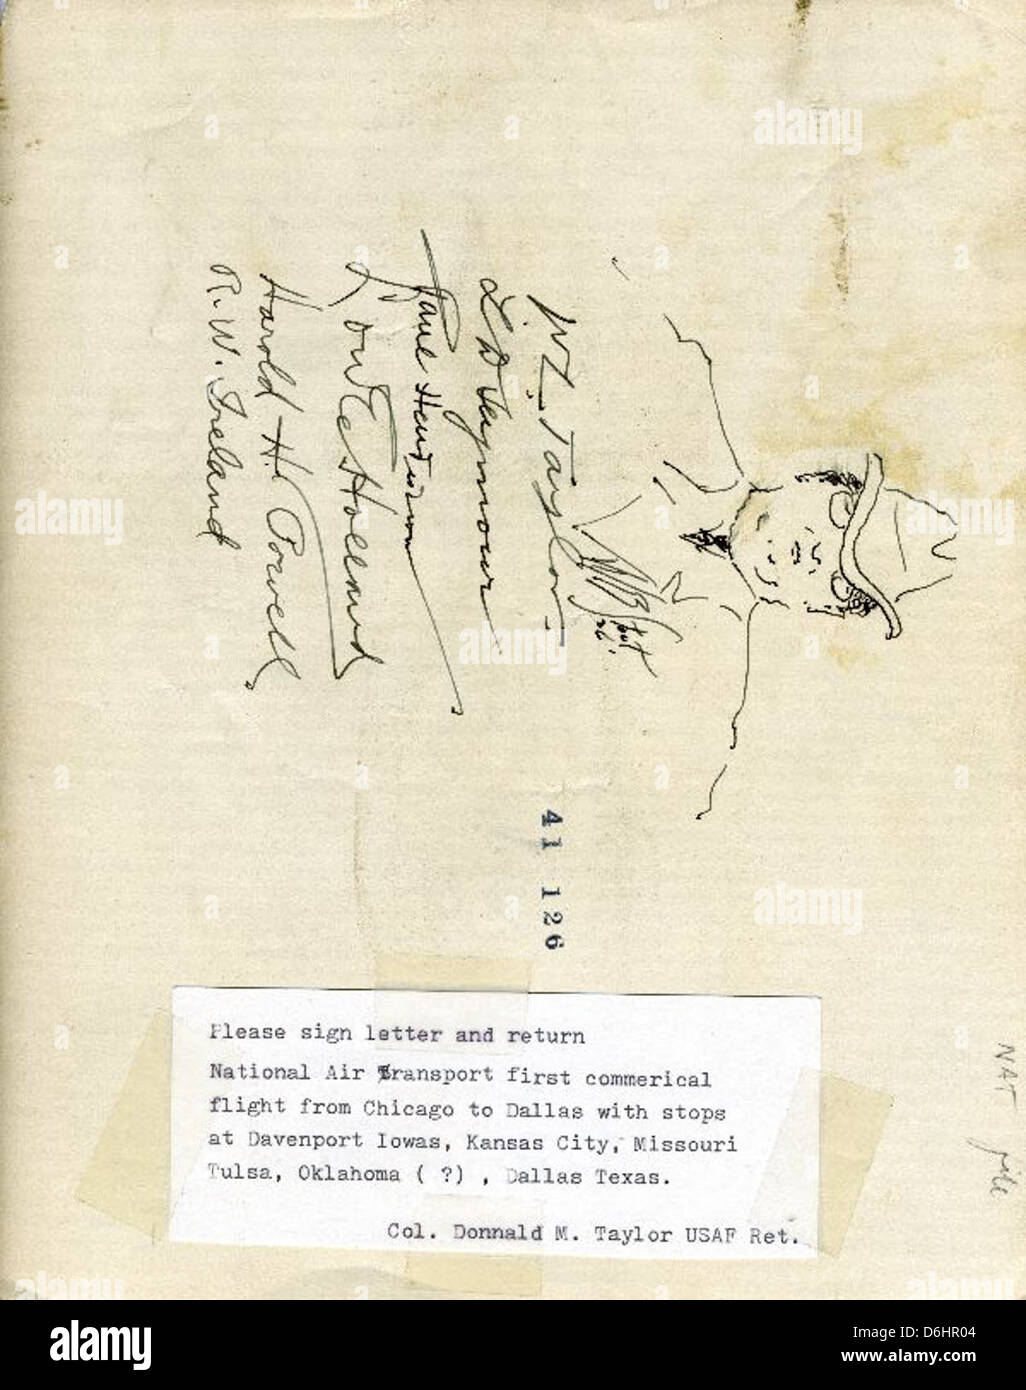 W. L. Taylor
L D Seymour
Paul Henderson
Lowell E Holland
Harold H. Powell
R. W. Ireland
'26.
41 126
Please sign letter and return
National Air Transport first commerical
flight from Chicago to Dallas with stops
at Davenport Iowas, Kansas City, Missouri
Tulsa, Oklahoma ( ?) , Dallas Texas.
Col. Donnald M. Taylor USAF Ret.
NAT file
alamy
Image ID: D6HR04
www.alamy.com